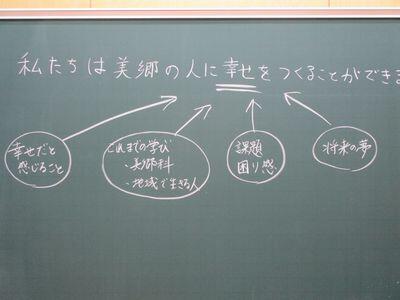 私たちは美郷の人に幸せをつくることができ
幸せだと
感じること
これまでの学び
・美郷科
・地域で生きる人
課題
困り感
将来の夢